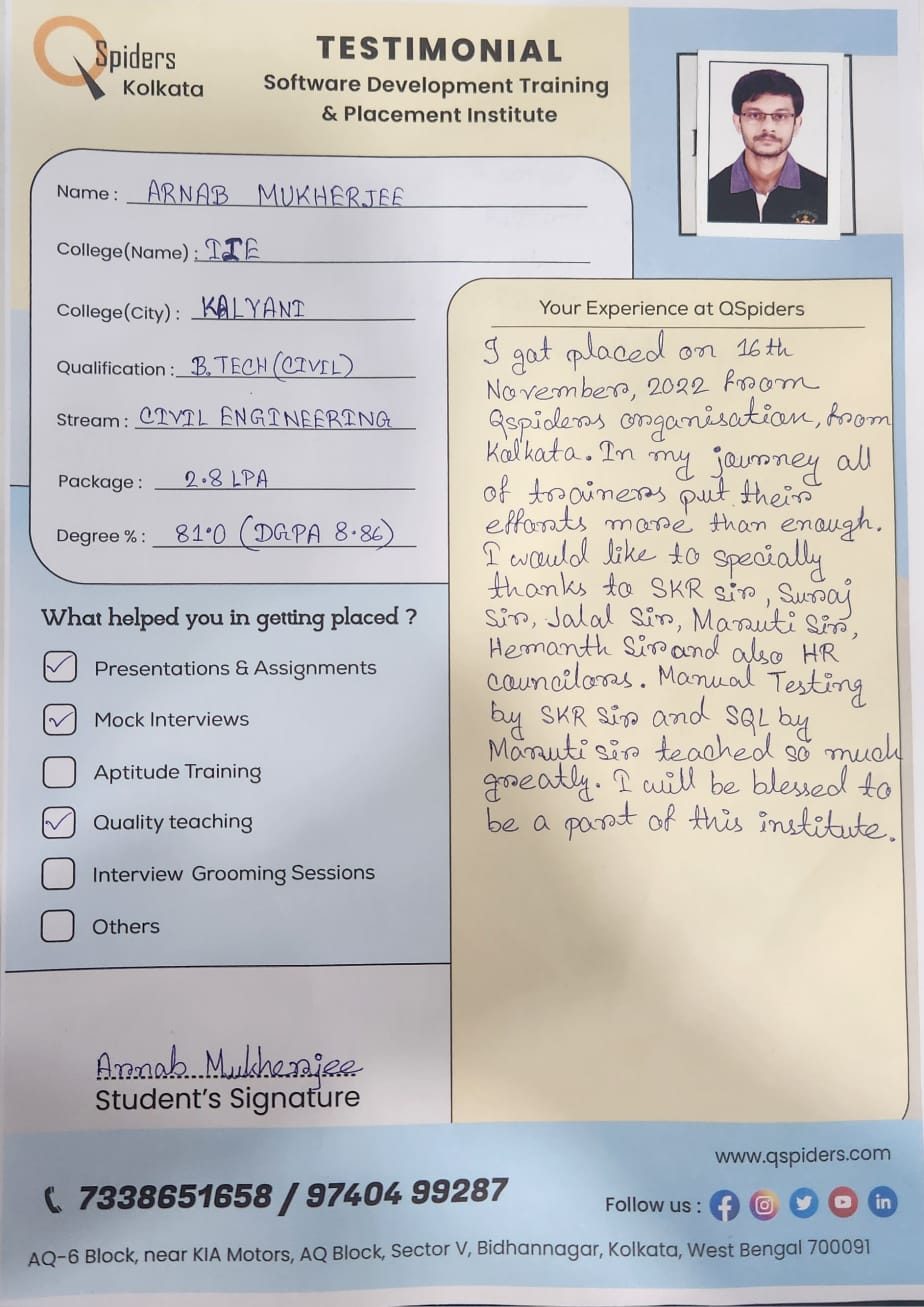 QSpiders
Kolkata
TESTIMONIAL
Software Development Training
& Placement Institute
Name : ARNAB MUKHERJEE
College(Name) : IIE
College(City) : KALYANI
Qualification : B.TECH (CIVIL)
Stream : CIVIL ENGINEERING
Package : 2.8 LPA
Degree % : 81.0 (DGPA 8.86)
What helped you in getting placed ?
Presentations & Assignments
Mock Interviews
Aptitude Training
Quality teaching
Interview Grooming Sessions
Others
Arnab Mukherjee
Student's Signature
Your Experience at QSpiders
I got placed on 16th
November, 2022 from
Qspiders organisation, from
Kolkata. In my journey all
of trainers put their
efforts more than enough.
I would like to specially
thanks to SKR sir, Suraj
Sir, Jalal Sir, Maruti Sir,
Hemanth Sir and also HR
councilors. Manual Testing
by SKR Sir and SQL by
Maruti sir teached so much
greatly. I will be blessed to
be a part of this institute.
www.qspiders.com
7338651658 / 97404 99287
Follow us :
AQ-6 Block, near KIA Motors, AQ Block, Sector V, Bidhannagar, Kolkata, West Bengal 700091